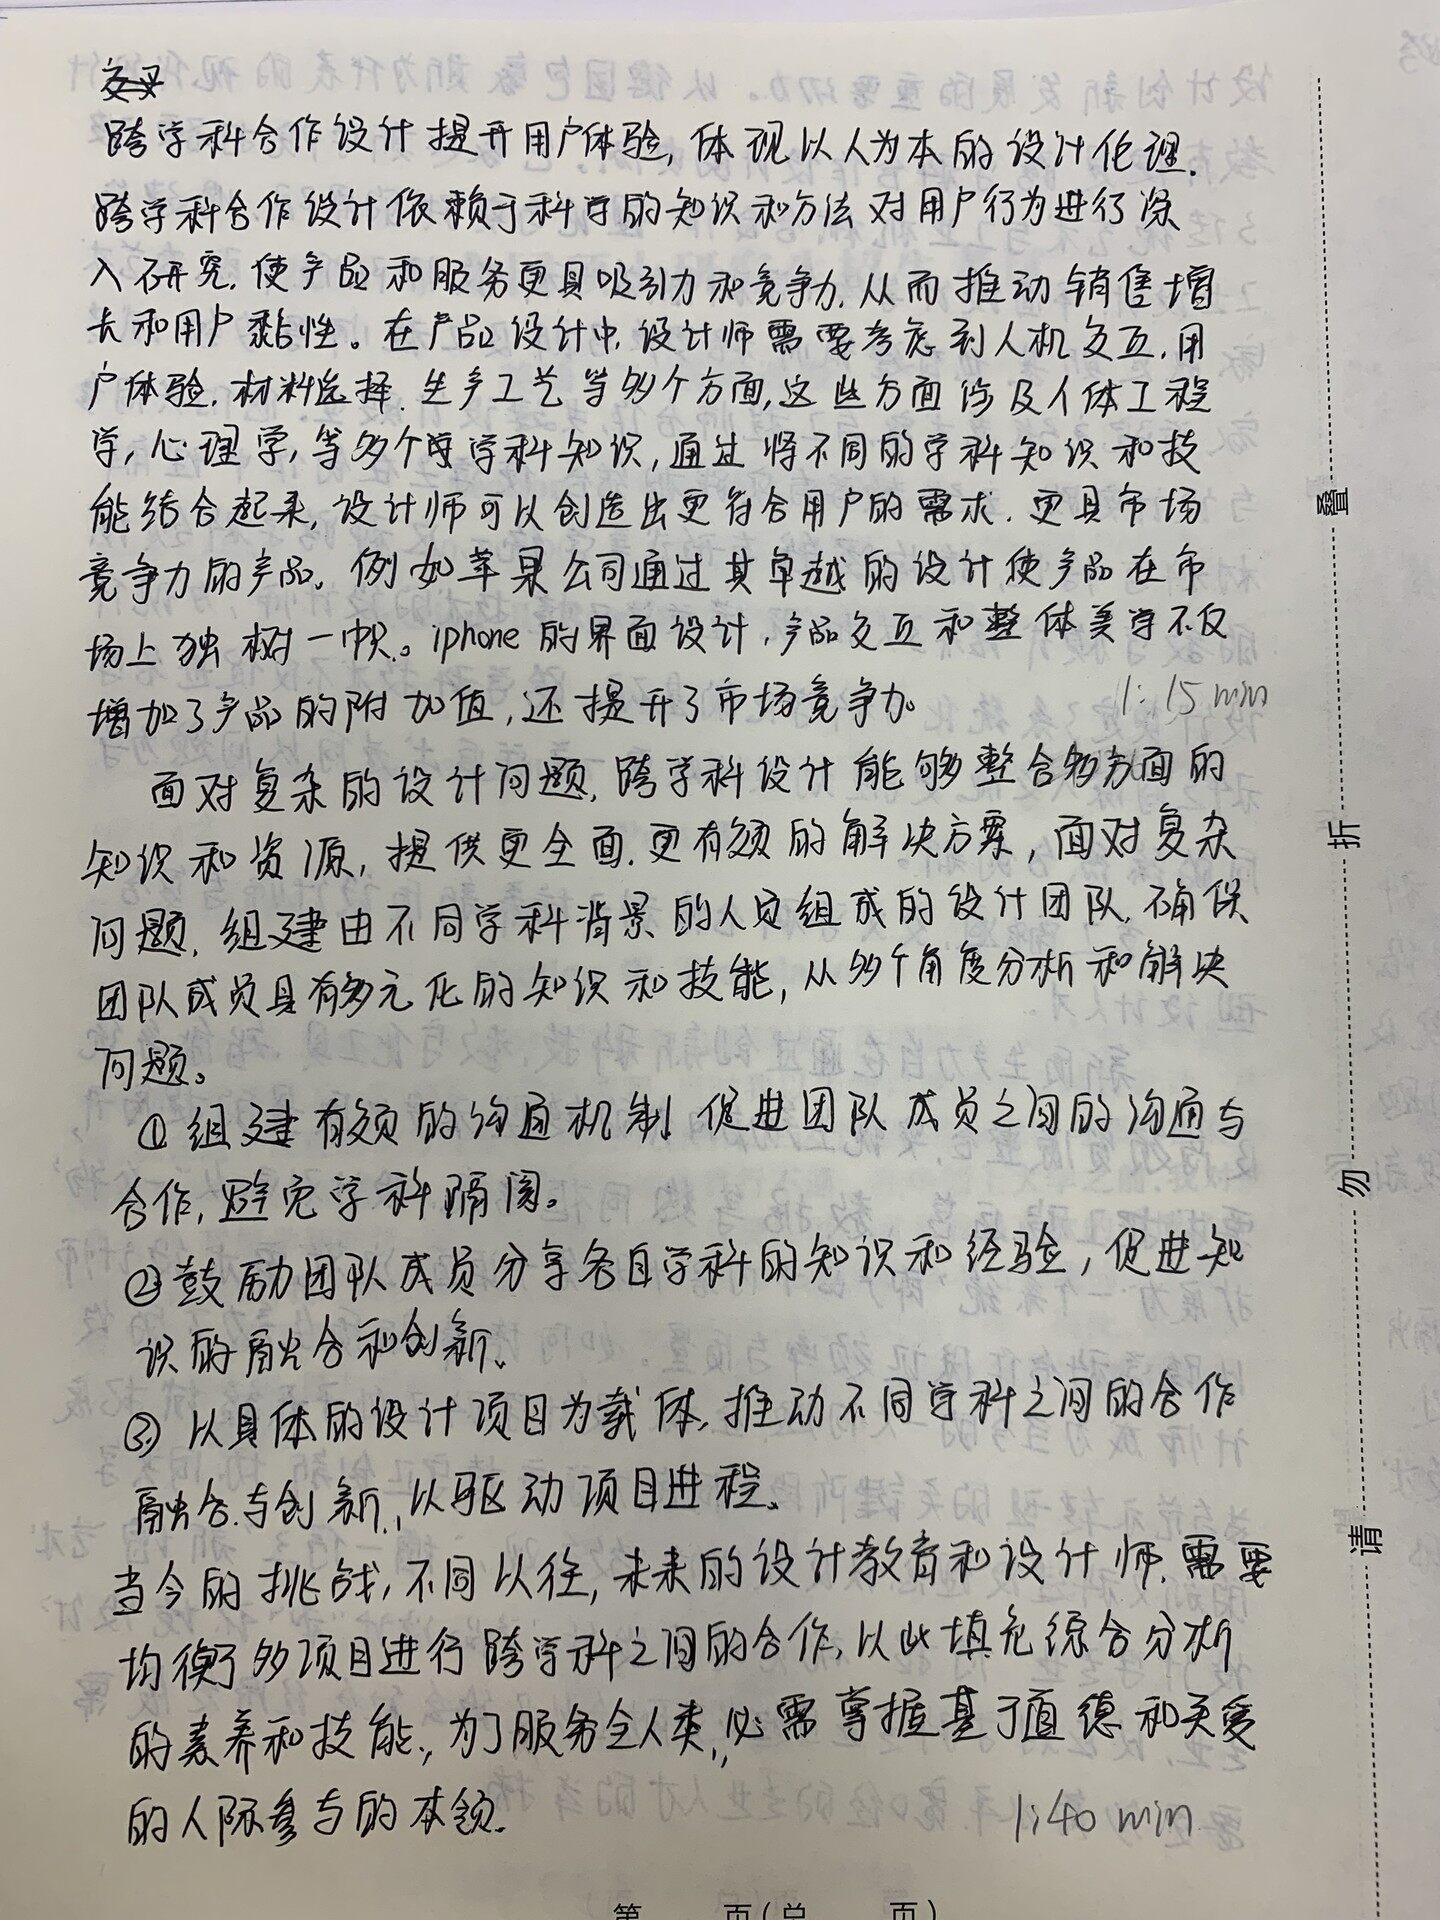 交叉
跨学科合作设计提升用户体验,体现以人为本的设计伦理.
跨学科合作设计依赖于科学的知识和方法对用户行为进行深
入研究.使产品和服务更具吸引力和竞争力.从而推动销售增
长和用户黏性。在产品设计中,设计师需要考虑到人机交互.用
户体验.材料选择.生产工艺等多个方面,这些方面涉及人体工程
学,心理学,等多个学科知识,通过将不同的学科知识和技
能结合起来,设计师可以创造出更符合用户的需求.更具市场
竞争力的产品。例如苹果公司通过其卓越的设计使产品在市
场上独树一帜。iphone的界面设计,产品交互和整体美学不仅
增加了产品的附加值,还提升了市场竞争力。
1:15min
面对复杂的设计问题,跨学科设计能够整合多方面的
知识和资源,提供更全面.更有效的解决方案,面对复杂
问题.组建由不同学科背景的人员组成的设计团队.确保
团队成员具有多元化的知识和技能,从多个角度分析和解决
问题。
①组建有效的沟通机制 促进团队成员之间的沟通与
合作,避免学科隔阂。
②鼓励团队成员分享各自学科的知识和经验,促进知
识的融合和创新、
③以具体的设计项目为载体,推动不同学科之间的合作
融合与创新,以驱动项目进程。
当今的挑战,不同以往,未来的设计教育和设计师,需要
均衡多项目进行跨学科之间的合作,以此填充综合分析
的素养和技能,为了服务全人类,必需掌握基于道德和关爱
的人际参与的本领.
1:40 min
第 页(总 页)
叠
折
勿
请